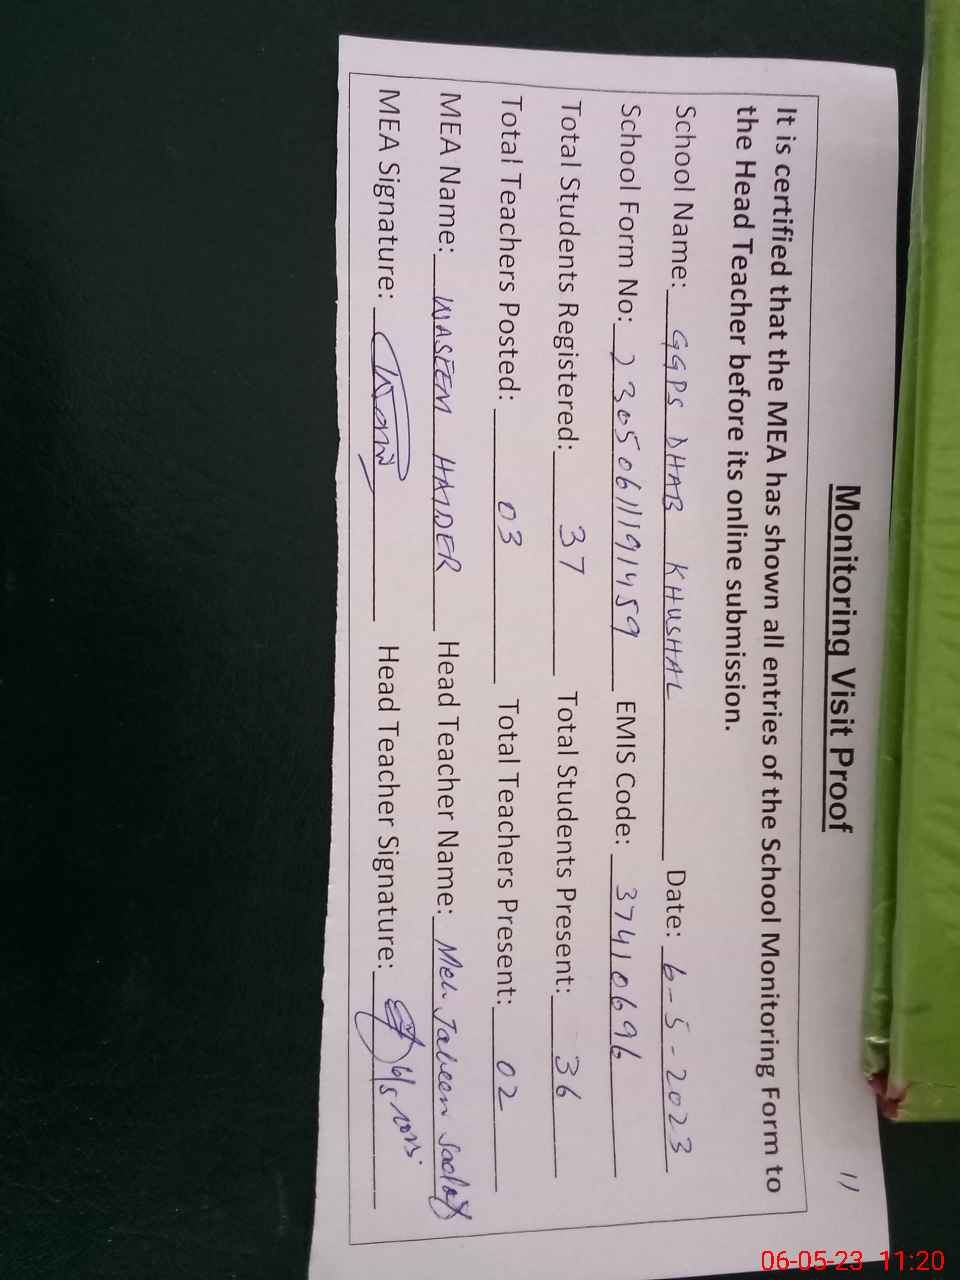 11
Monitoring Visit Proof
It is certified that the MEA has shown all entries of the School Monitoring Form to
the Head Teacher before its online submission.
School Name: GGPS DHAB KHUSHAL Date: 6-5-2023
School Form No: 23050611191459 EMIS Code: 37410696
Total Students Registered: 37 Total Students Present: 36
Total Teachers Posted: 03 Total Teachers Present: 02
MEA Name: WASEEM HAIDER Head Teacher Name: Meh Jabeen
MEA Signature: Head Teacher Signature:
06-05-23 11:20